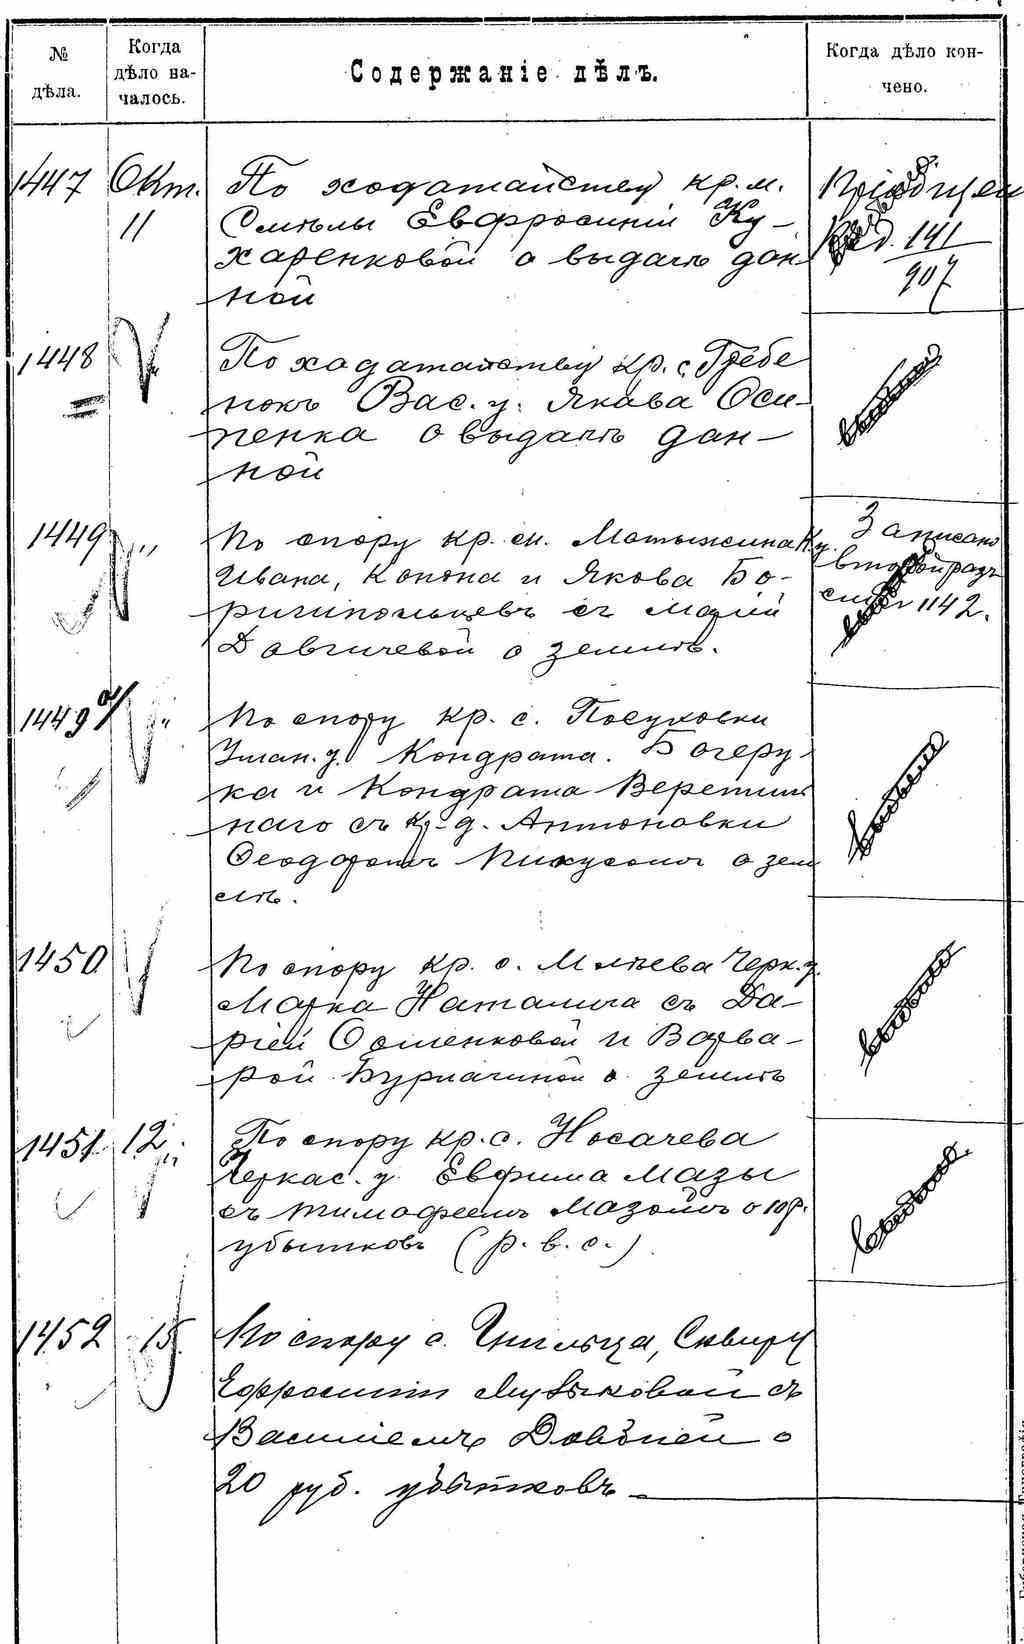 № дѣла.
Когда дѣло началось.
Содержаніе дѣлъ.
Когда дѣло кончено.
1447 Окт. 11
По ходатайству кр. м.
Смѣлы Евфросиніи Ку-
харенковой о выдачѣ дан
ной
141
907
1448 "
По ходатайству кр. с. Гребе
нокъ Вас. у. Якова Оси-
пенка о выдачѣ дан-
ной
1449 "
По спору кр. с. Мотыжина К. у.
Ивана, Конона и Якова Бо-
риспольцевъ съ Маріей
Довгичевой о землѣ.
Записано
второй разъ
см. № 1142.
1449а/ "
По спору кр. с. Посуховки
Уман. у. Кондрата
ка и Кондрата
наго съ кр. д. Антоновки
Ѳеодоромъ о зем
лѣ.
1450
По спору кр. с. Млѣева Черк. у.
Марка Наталича съ Да-
ріей и Варва-
рой о землѣ
1451 12 "
По спору кр. с. Носачева
Черкас. у. Евфима Мазы
съ Тимофеемъ Мазой о 10 р.
убытковъ (р. в. с.)
1452 15
По спору с. Гнильца, Сквир. у
Ефросиніи съ
Василіемъ о
20 руб. убытковъ